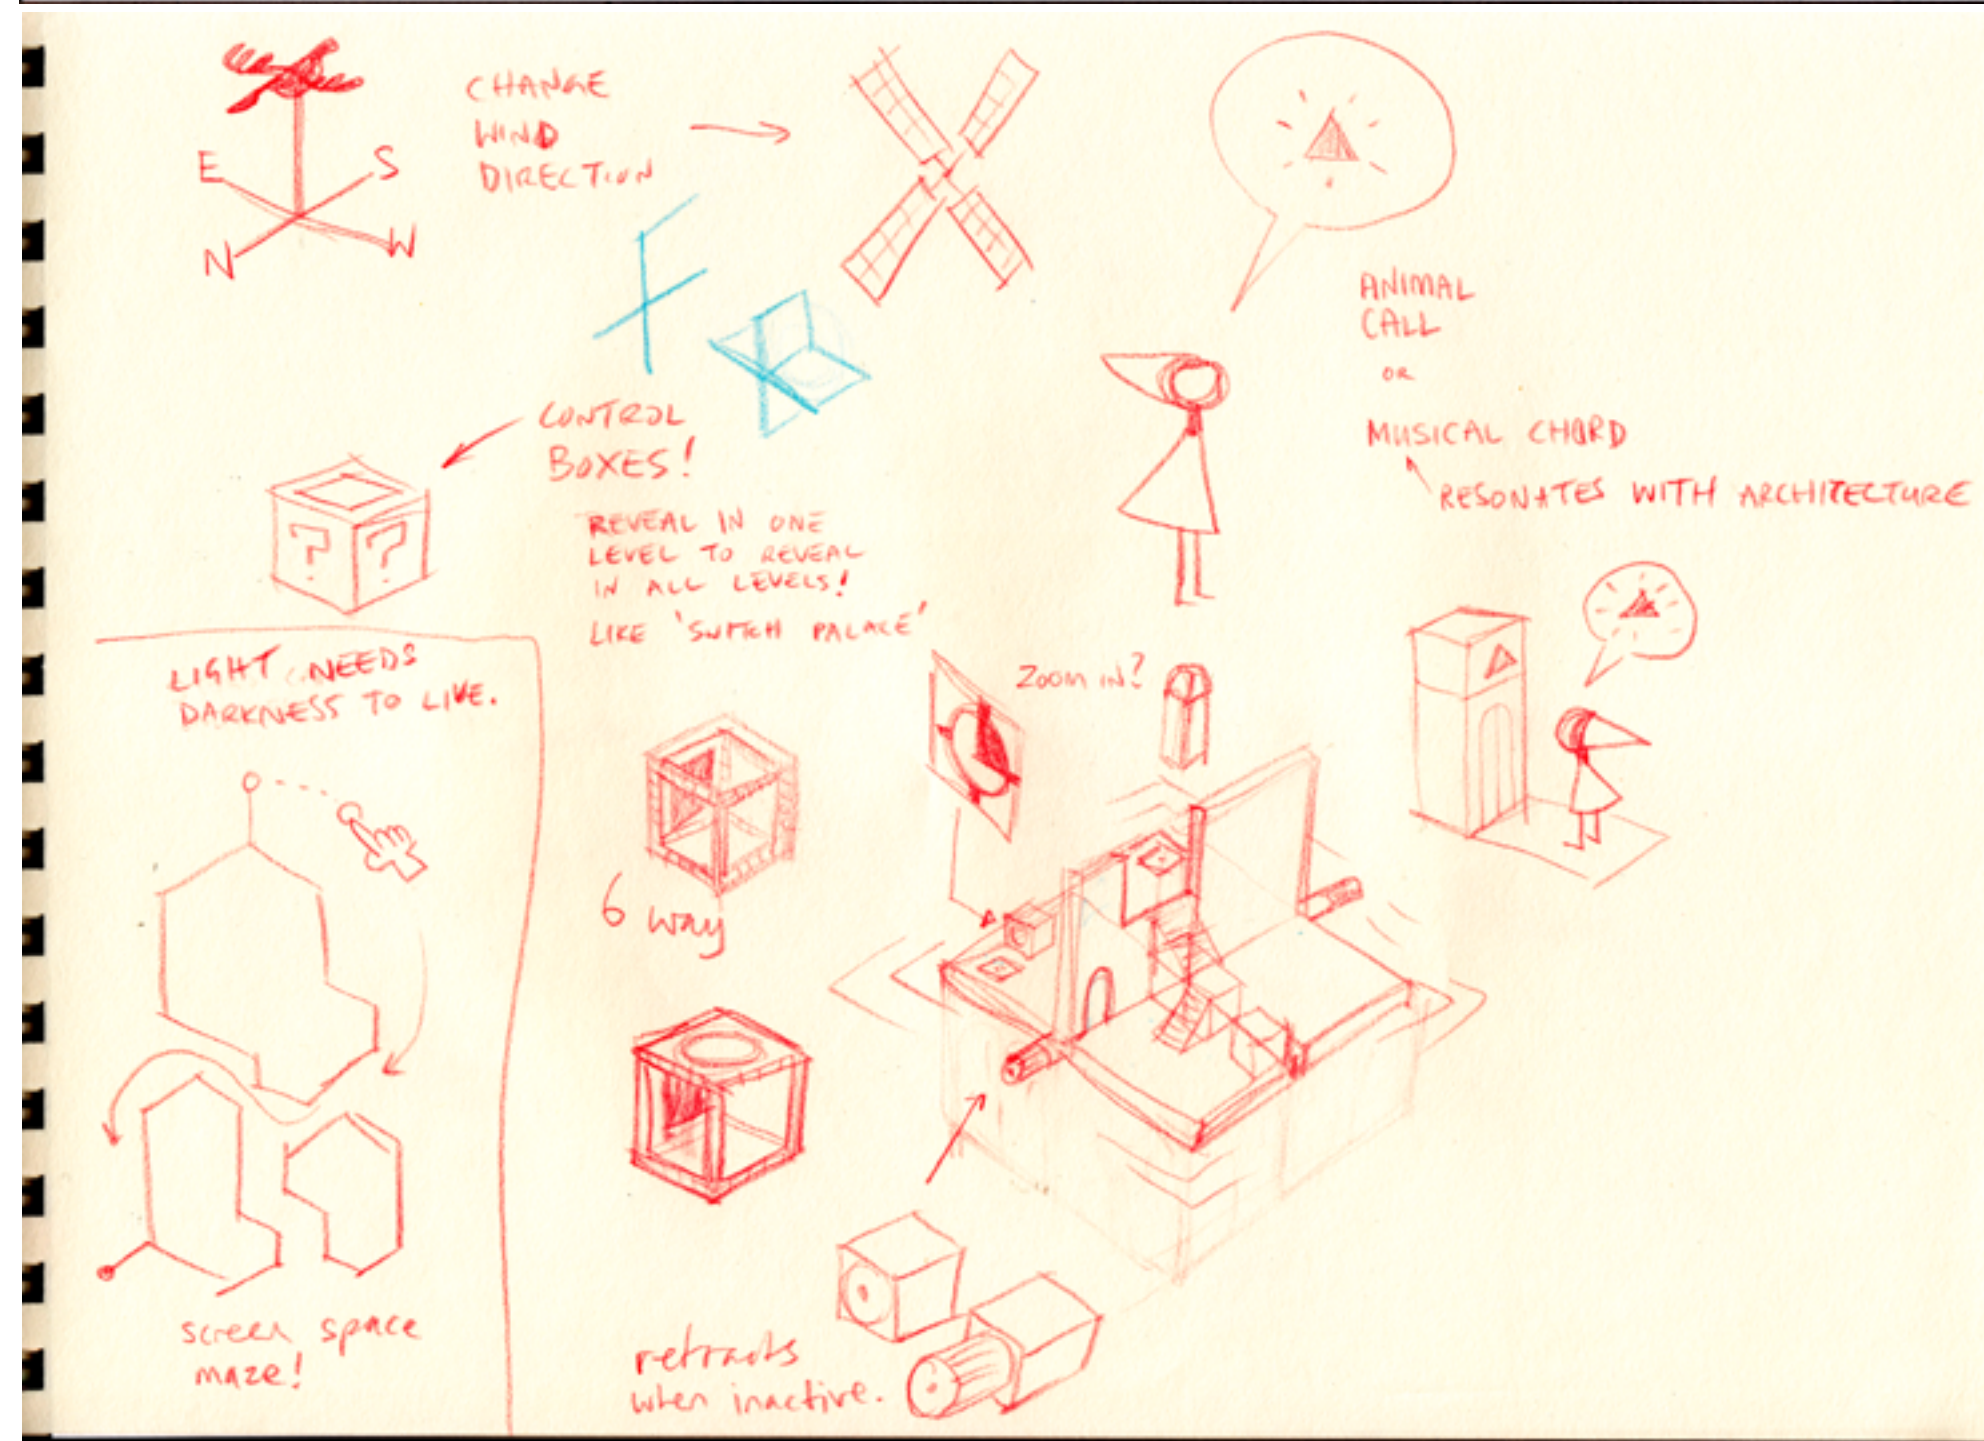 E
S
N
W
CHANGE
WIND
DIRECTION
ANIMAL
CALL
OR
MUSICAL CHORD
RESONATES WITH ARCHITECTURE
CONTROL
BOXES!
? ?
REVEAL IN ONE
LEVEL TO REVEAL
IN ALL LEVELS!
LIKE 'SWITCH PALACE'
LIGHT NEEDS
DARKNESS TO LIVE.
ZOOM IN?
6 way
screen space
maze!
retracts
when inactive.